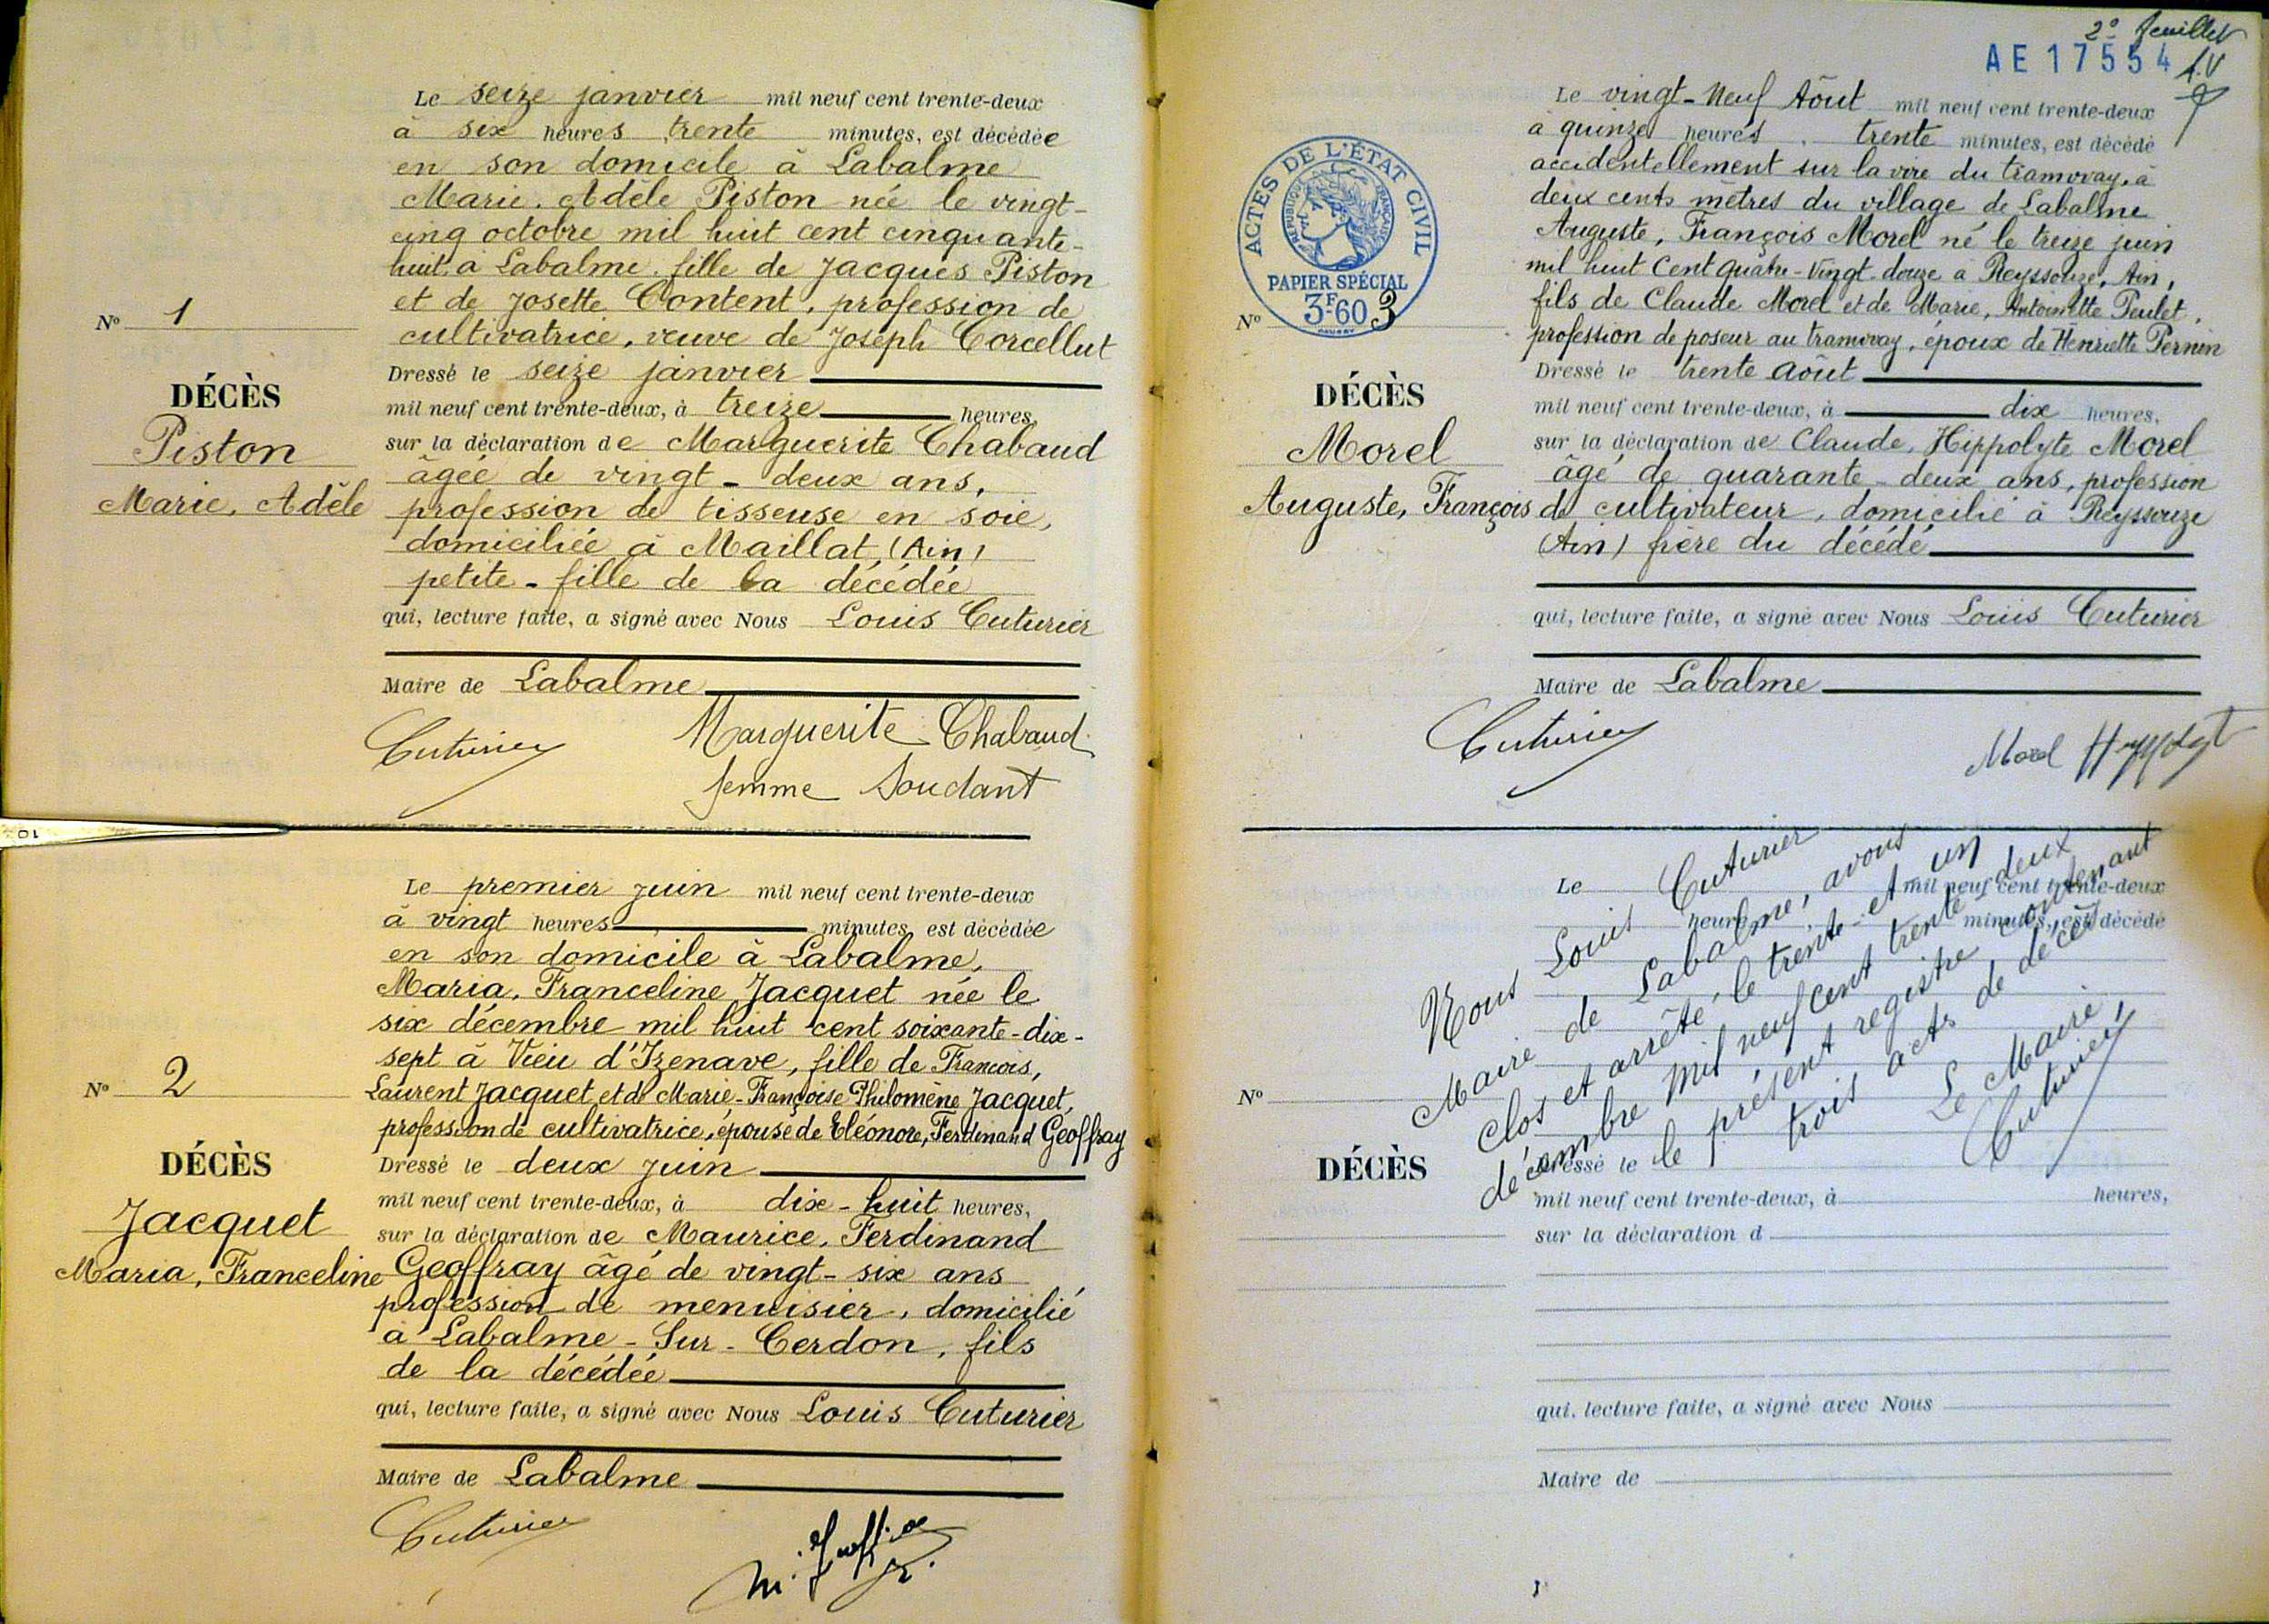 Le seize janvier mil neuf cent trente-deux
à six heures trente minutes, est décédée
en son domicile à Labalme
Marie, Adèle Piston née le vingt-
cinq octobre mil huit cent cinquante-
huit à Labalme, fille de Jacques Piston
et de Josette Content, profession de
cultivatrice, veuve de Joseph Corcellut
Dressé le seize janvier
mil neuf cent trente-deux, à treize heures,
sur la déclaration de Marguerite Chabaud
âgée de vingt-deux ans,
profession de tisseuse en soie,
domiciliée à Maillat, (Ain)
petite-fille de la décédée
qui, lecture faite, a signé avec Nous Louis Cuturier
Maire de Labalme
Cuturier
Marguerite Chabaud
femme Soudant
N° 1
DÉCÈS
Piston
Marie, Adèle
Le premier juin mil neuf cent trente-deux
à vingt heures minutes, est décédée
en son domicile à Labalme,
Maria, Franceline Jacquet née le
six décembre mil huit cent soixante-dix-
sept à Vieu d'Izenave, fille de Francois,
Laurent Jacquet et de Marie-Françoise Philomène Jacquet,
profession de cultivatrice, épouse de Eléonore, Ferdinand Geoffray
Dressé le deux juin
mil neuf cent trente-deux, à dix-huit heures,
sur la déclaration de Maurice, Ferdinand
Geoffray âgé de vingt-six ans
profession de menuisier, domicilié
à Labalme-Sur-Cerdon, fils
de la décédée
qui, lecture faite, a signé avec Nous Louis Cuturier
Maire de Labalme
Cuturier
N° 2
DÉCÈS
Jacquet
Maria, Franceline
2e feuillet
AE 17554
ACTES DE L'ÉTAT CIVIL
RÉPUBLIQUE FRANÇAISE
PAPIER SPÉCIAL
3F60
Le vingt-neuf Août mil neuf cent trente-deux
à quinze heures trente minutes, est décédé
accidentellement sur la voie du tramway, à
deux cents mètres du village de Labalme
Auguste, François Morel né le treize juin
mil huit cent quatre-vingt-douze à Reyssouze, Ain,
fils de Claude Morel et de Marie, Antoinette Peulet,
profession de poseur au tramway, époux de Henriette Pernin
Dressé le trente août
mil neuf cent trente-deux, à dix heures,
sur la déclaration de Claude, Hippolyte Morel
âgé de quarante-deux ans, profession
de cultivateur, domicilié à Reyssouze
(Ain) frère du décédé
qui, lecture faite, a signé avec Nous Louis Cuturier
Maire de Labalme
Cuturier
Morel Hippolyte
N° 3
DÉCÈS
Morel
Auguste, François
Le mil neuf cent trente-deux
heures minutes, est décédé
Nous Louis Cuturier
Maire de Labalme, avons
clos et arrêté, le trente-et-un
décembre mil neuf cent trente deux
le présent registre contenant
trois actes de décès
Le Maire,
Cuturier
N°
DÉCÈS
Dressé le
mil neuf cent trente-deux, à heures,
sur la déclaration d
qui, lecture faite, a signé avec Nous
Maire de